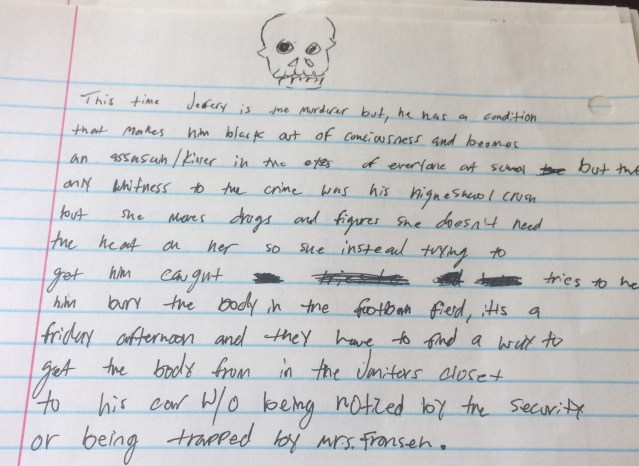 This time Jefery is the murderer but, he has a condition
that makes him black out of conciousness and becomes
an assasain/killer in the eyes of everyone at school but the
only whitness to the crime was his highschool crush
but she moves drugs and figures she doesn't need
the heat on her so she instead trying to
get him caught tries to he
him bury the body in the football field, its a
friday afternoon and they have to find a way to
get the body from in the Janitors closet
to his car w/o being noticed by the security
or being trapped by Mrs. Fransen.